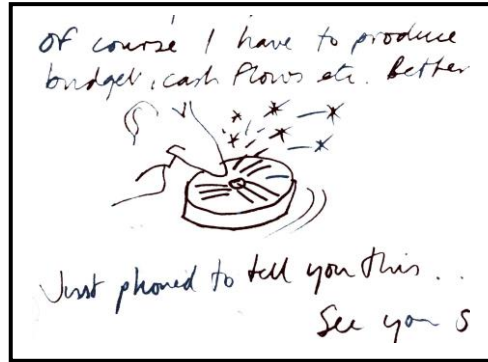 Of course I have to produce
budget, cash flows etc. Better
Just phoned to tell you this...
See you S